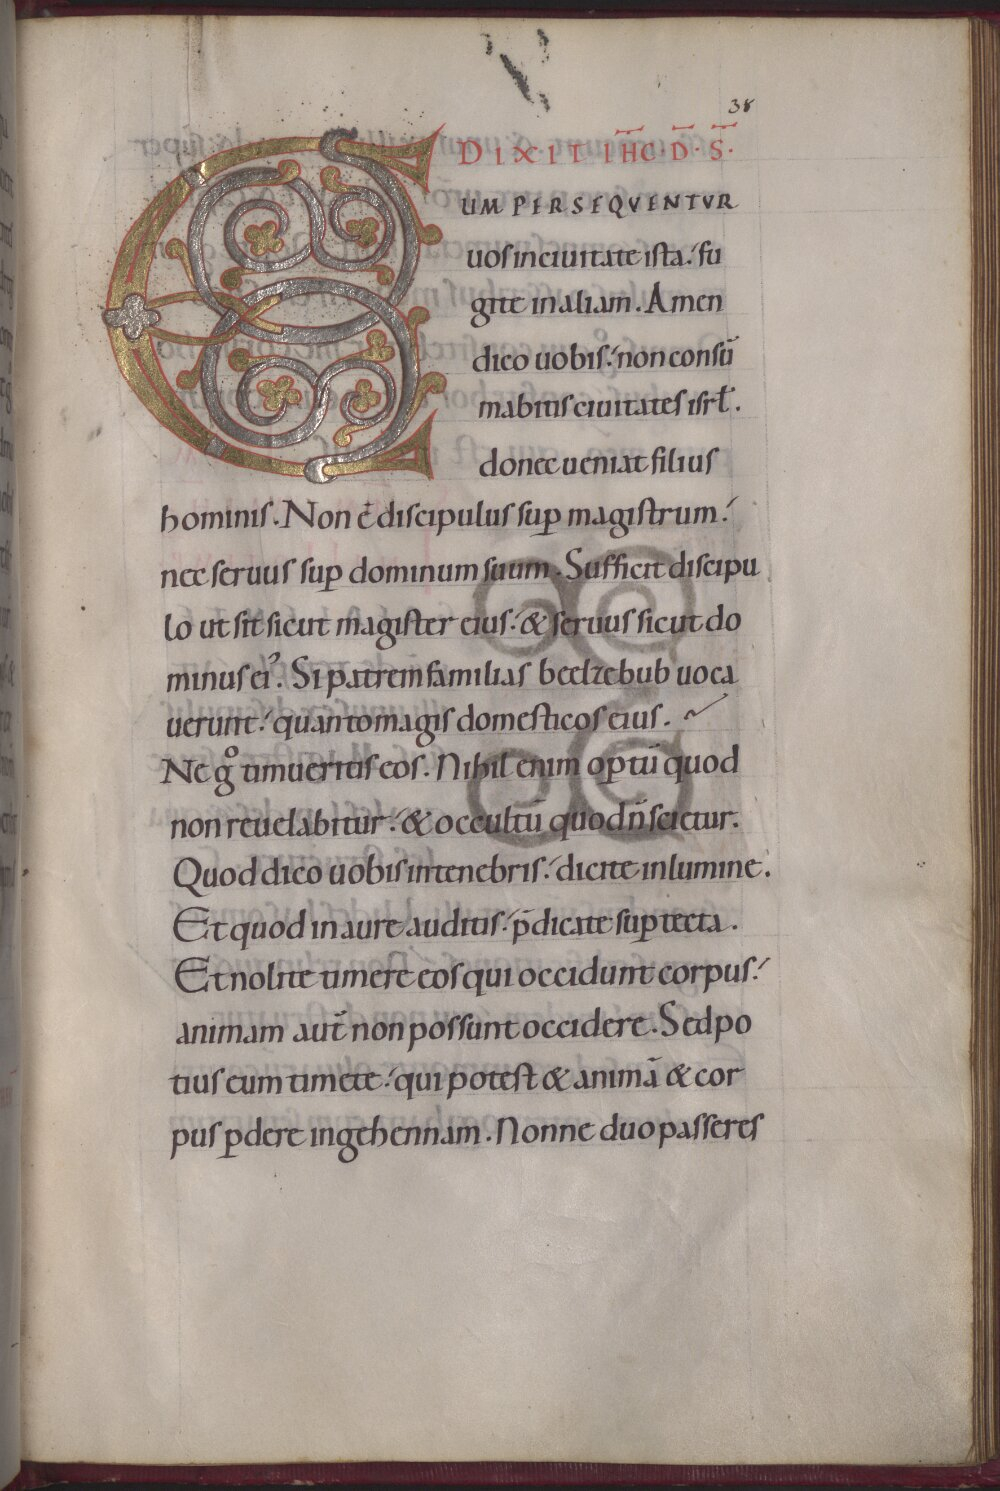 38
DIXIT IHC̅. D̅. S̅.
CUM PERSEQVENTVR
uos in ciuitate ista: fu
gite in aliam. Amen
dico uobis: non consū
mabitis ciuitates isrl̄.
donec ueniat filius
hominis. Non ē discipulus suꝑ magistrum:
nec seruus suꝑ dominum suum. Sufficit discipu
lo ut sit sicut magister eius: & seruus sicut do
minus eiꝰ. Si patrem familias beelzebub uoca
uerunt: quanto magis domesticos eius.
Ne gͦ timueritis eos. Nihil enim oꝑtū quod
non reuelabitur: & occultū quod n̄ scietur.
Quod dico uobis in tenebris: dicite in lumine.
Et quod in aure auditis: p̄dicate suꝑ tecta.
Et nolite timere eos qui occidunt corpus:
animam aut̄ non possunt occidere. Sed po
tius eum timete: qui potest & animā & cor
pus ꝑdere in gehennam. Nonne duo passeres